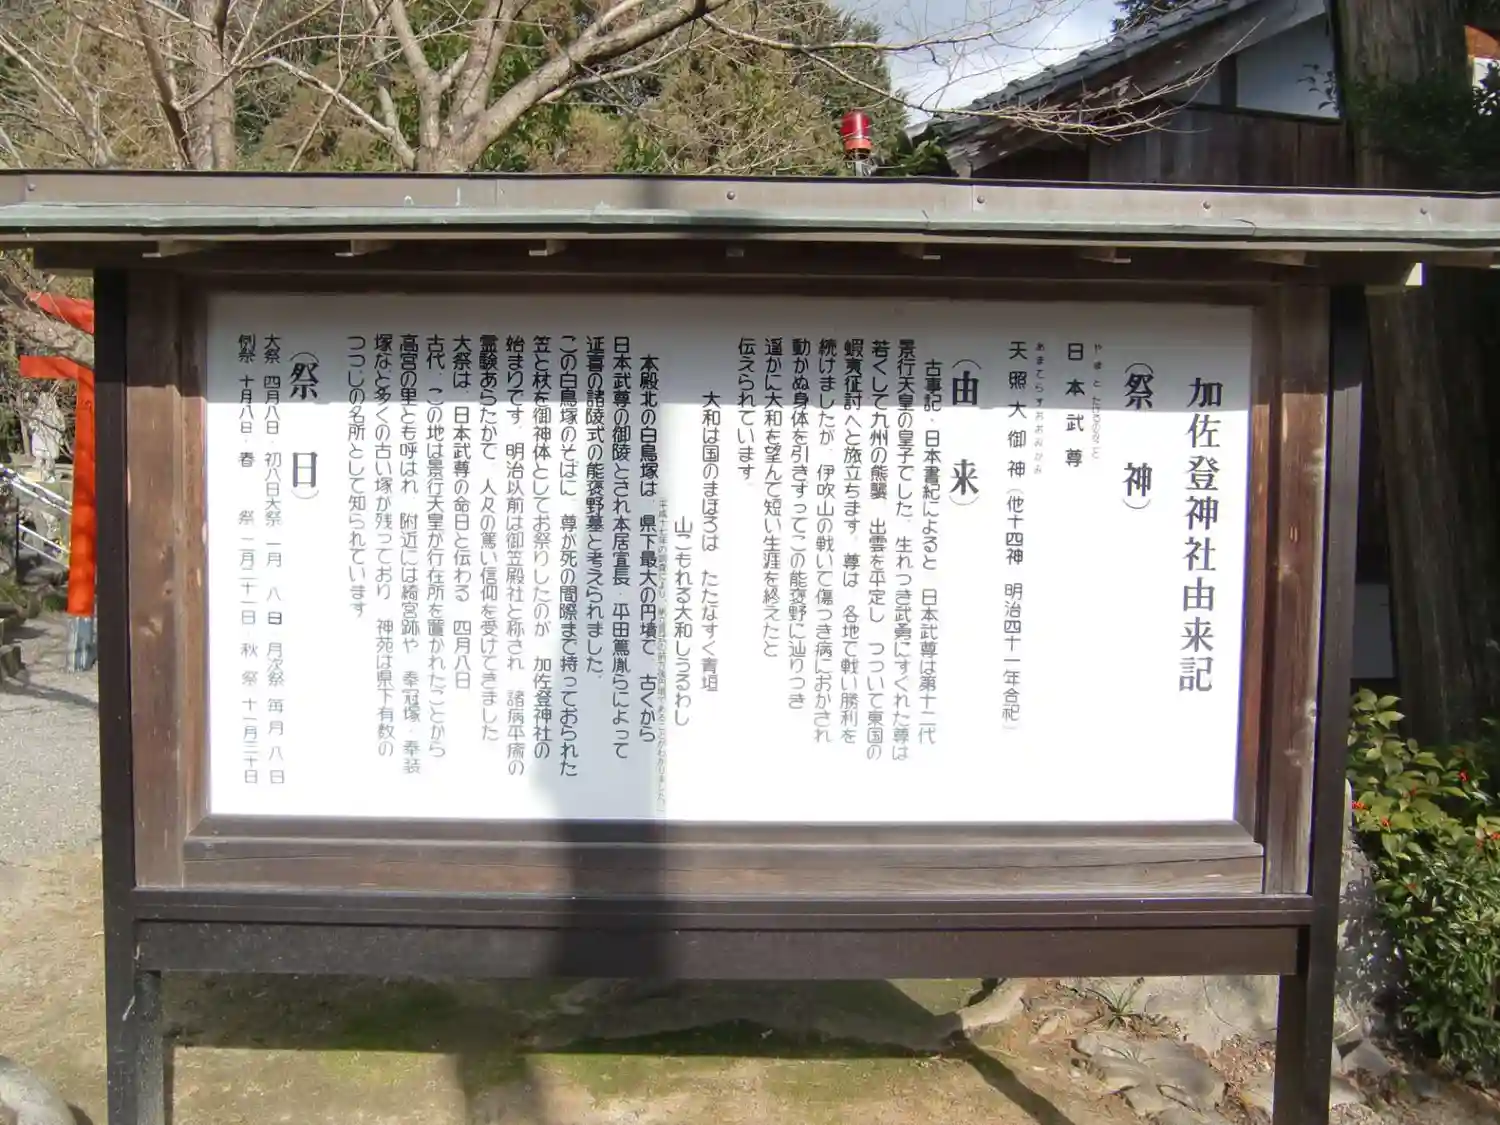 加佐登神社由来記
（祭　神）
やまとたけるのみこと
日本武尊
あまてらすおおみかみ
天照大御神（他十四神　明治四十一年合祀）
（由　来）
古事記・日本書紀によると　日本武尊は第十二代
景行天皇の皇子でした。生れつき武勇にすぐれた尊は
若くして九州の熊襲、出雲を平定し　つづいて東国の
蝦夷征討へと旅立ちます。尊は　各地で戦い勝利を
続けましたが、伊吹山の戦いで傷つき病におかされ
動かぬ身体を引きずってこの能褒野に辿りつき
遥かに大和を望んで短い生涯を終えたと
伝えられています。
大和は国のまほろば　たたなずく青垣
山ごもれる大和しうるわし
平成十七年の調査により
であることがわかりました。
本殿北の白鳥塚は、県下最大の円墳で、古くから
日本武尊の御陵とされ本居宣長・平田篤胤らによって
延喜の諸陵式の能褒野墓と考えられました。
この白鳥塚のそばに、尊が死の間際まで持っておられた
笠と杖を御神体としてお祭りしたのが　加佐登神社の
始まりです。明治以前は御笠殿社と称され　諸病平癒の
霊験あらたかで、人々の篤い信仰を受けてきました。
大祭は、日本武尊の命日と伝わる　四月八日
古代、この地は景行天皇が行在所を置かれたことから
高宮の里とも呼ばれ　附近には綺宮跡や　奉冠塚・奉装
塚など多くの古い塚が残っており　神苑は県下有数の
つつじの名所として知られています
（祭　日）
大祭　四月八日・初八日大祭　一月　八　日　月次祭　毎　月　八　日
例祭　十月八日・春　　祭　二月二十一日・秋　祭　十一月二十日